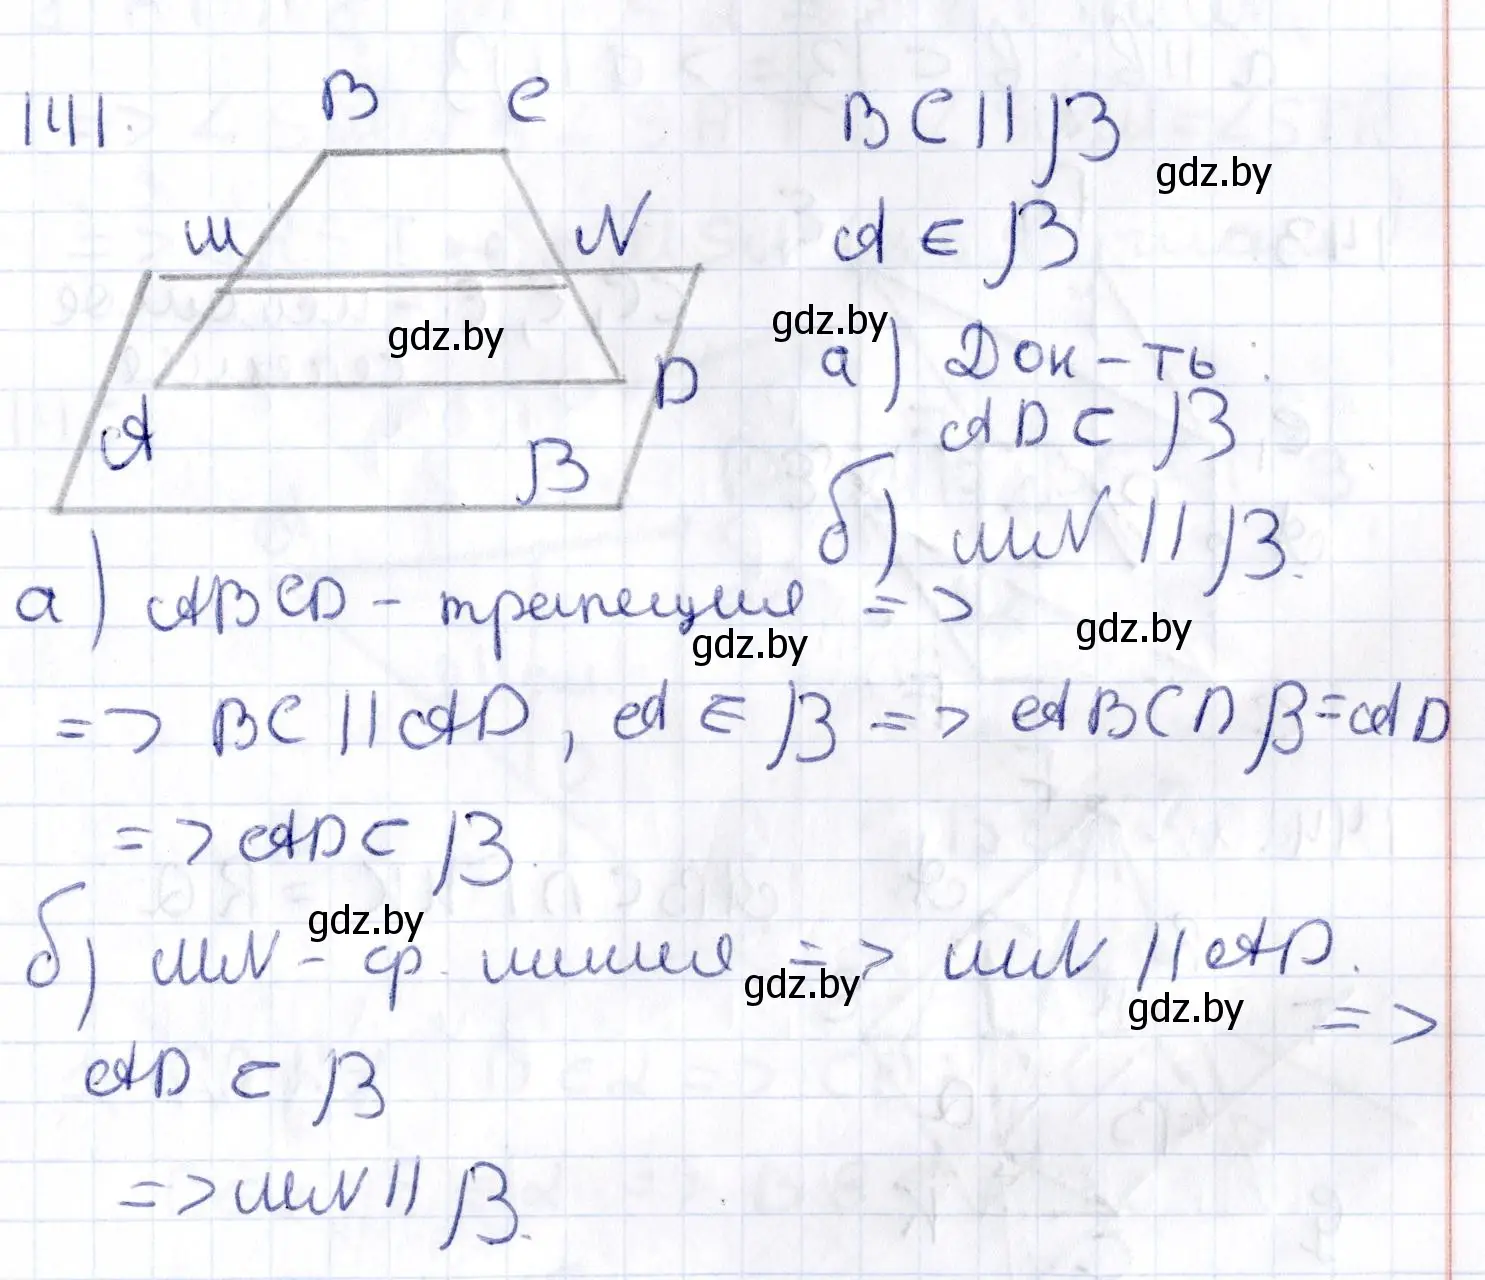 141.
B C
M N
A D
β
BC || β
A ∈ β
а) Док-ть:
AD ⊂ β
б) MN || β.
а) ABCD - трапеция =>
=> BC || AD, A ∈ β => ABCD ∩ β = AD
=> AD ⊂ β.
б) MN - ср. линия => MN || AD. =>
AD ⊂ β
=> MN || β.
gdz.by
gdz.by
gdz.by
gdz.by
gdz.by
gdz.by
gdz.by
gdz.by